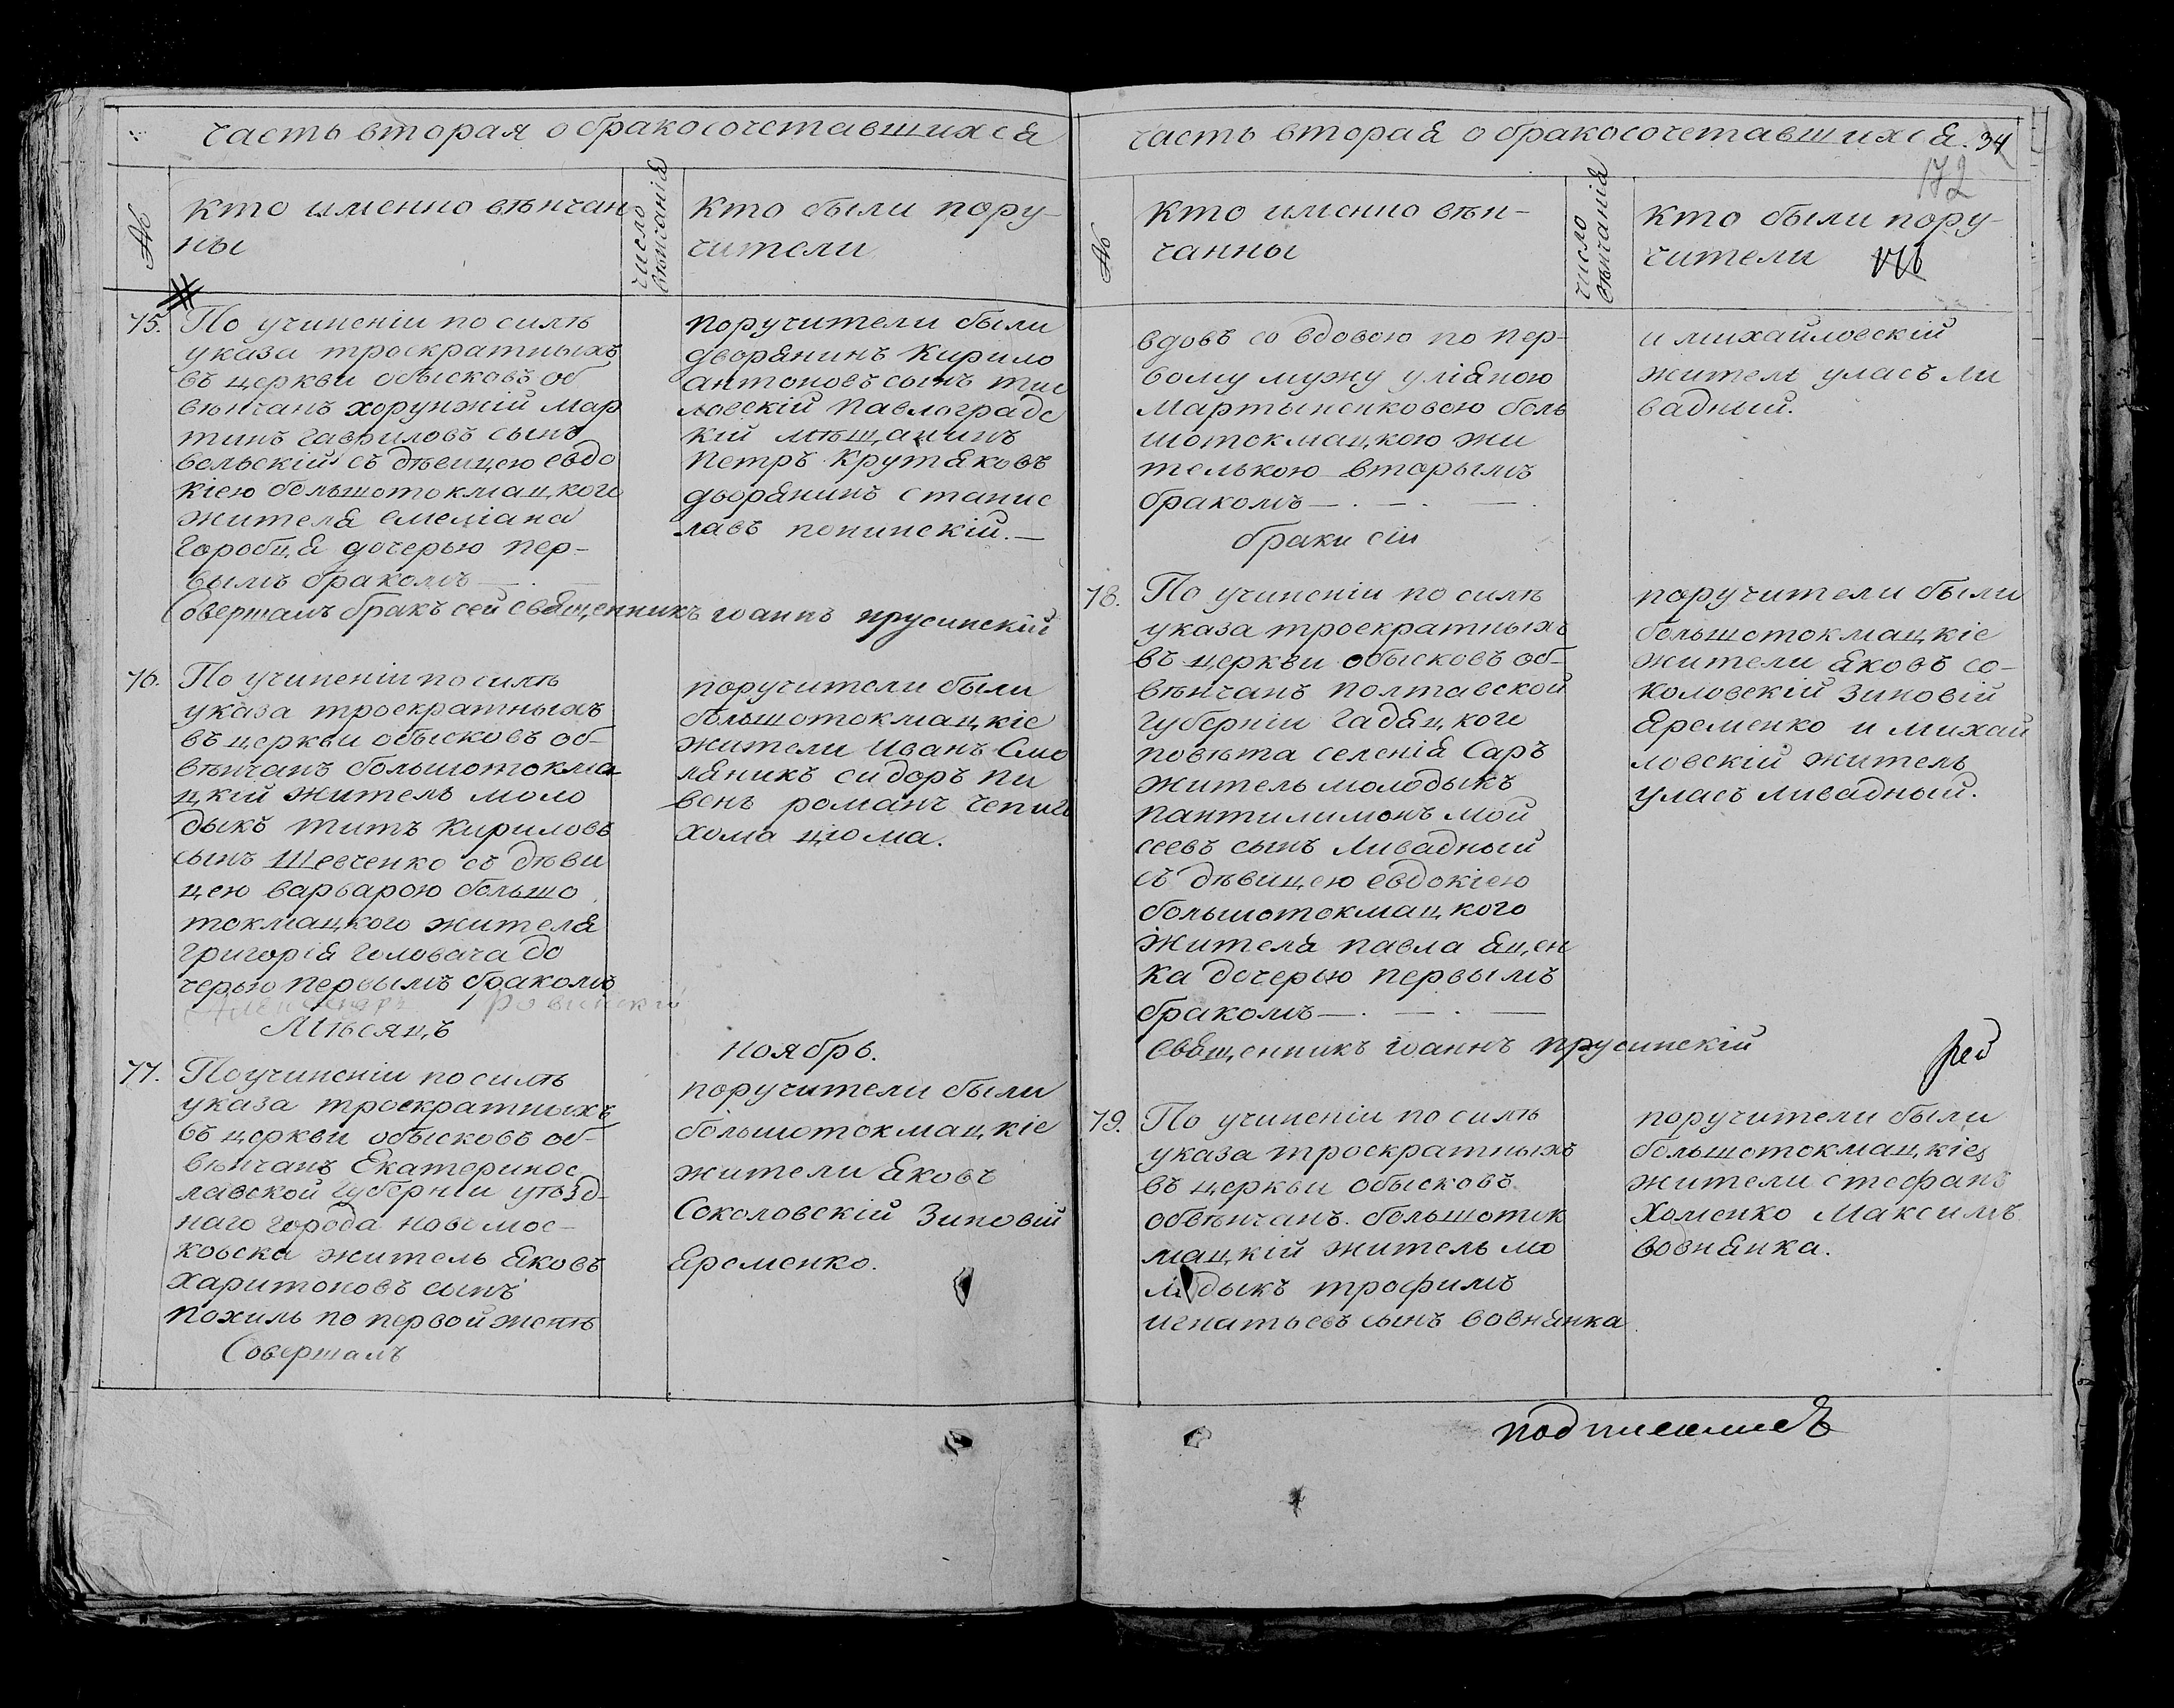 часть вторая о бракосочетавшихся
№
кто именно вѣнчан
ны
число
вѣнчанія
кто были пору-
чители
75. По учиненіи по силѣ
указа троекратныхъ
въ церкви обысковъ об
вѣнчанъ хорунжій мар
тинъ гавриловъ сынъ
вольскій съ дѣвицею евдо
кіею большотокмацкого
жителя емеліана
горобця дочерью пер-
вымъ бракомъ
поручители были
дворянинъ кирило
антоновъ сынъ тис
ловскій павлоградс
кій мѣщанинъ
петръ крутяковъ
дворянинъ станис
лавъ попинскій.
Совершалъ бракъ сей священникъ іоаннъ прусинскій
76. По учиненіи по силѣ
указа троекратныхъ
въ церкви обысковъ об-
вѣнчанъ большотокма
цкій житель моло
дыкъ титъ кириловъ
сынъ шевченко съ дѣви
цею варварою большо
токмацкого жителя
григорія головача до
черью первымъ бракомъ
поручители были
большотокмацкіе
жители иванъ смо
ляникъ сидоръ пи
венъ романъ чепига
хома цюма.
мѣсяцъ
ноябрь.
77. По учиненіи по силѣ
указа троекратныхъ
въ церкви обысковъ об-
вѣнчанъ екатеринос
лавской губерніи уѣзд-
наго города новомос-
ковска житель яковъ
харитоновъ сынъ
похиль по первой женѣ
поручители были
большотокмацкіе
жители яковъ
соколовскій зиновій
яременко.
Совершалъ
часть вторая о бракосочетавшихся. 34
172
№
кто именно вѣн-
чанны
число
вѣнчанія
кто были пору-
чители
вдовъ со вдовою по пер-
вому мужу уліяною
мартыненковою боль
шотокмацкою жи
телькою вторымъ
бракомъ
и михайловскій
житель уласъ ли
вадный.
браки сіи
78. По учиненіи по силѣ
указа троекратныхъ
въ церкви обысковъ об-
вѣнчанъ полтавской
губерніи гадяцкого
повѣта селенія саръ
житель молодыкъ
пантилимонъ мой
сеевъ сынъ ливадный
съ дѣвицею евдокіею
большотокмацкого
жителя павла яцен
ка дочерью первымъ
бракомъ
поручители были
большотокмацкіе
жители яковъ со-
коловскій зиновій
яременко и михай
ловскій житель
уласъ ливадный.
священникъ іоаннъ прусинскій
79. По учиненіи по силѣ
указа троекратныхъ
въ церкви обысковъ
обвѣнчанъ большоток
мацкій житель мо
лодыкъ трофимъ
игнатьевъ сынъ вовнянка
поручители были
большотокмацкіе
жители стефанъ
хоменко максимъ
вовнянка.